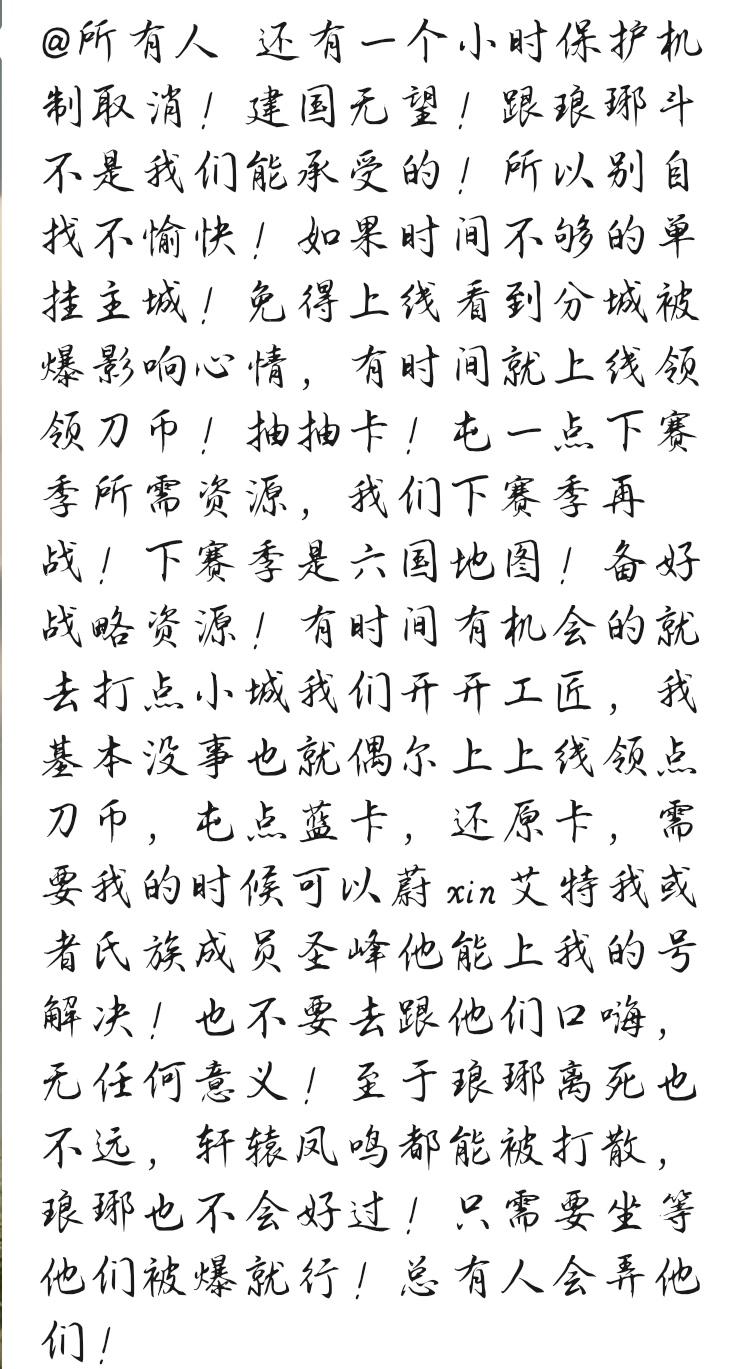 @所有人 还有一个小时保护机
制取消！建国无望！跟琅琊斗
不是我们能承受的！所以别自
找不愉快！如果时间不够的单
挂主城！免得上线看到分城被
爆影响心情，有时间就上线领
领刀币！抽抽卡！屯一点下赛
季所需资源，我们下赛季再
战！下赛季是六国地图！备好
战略资源！有时间有机会的就
去打点小城我们开开工匠，我
基本没事也就偶尔上上线领点
刀币，屯点蓝卡，还原卡，需
要我的时候可以蔚xin艾特我或
者氏族成员圣峰他能上我的号
解决！也不要去跟他们口嗨，
无任何意义！至于琅琊离死也
不远，轩辕凤鸣都能被打散，
琅琊也不会好过！只需要坐等
他们被爆就行！总有人会弄他
们！